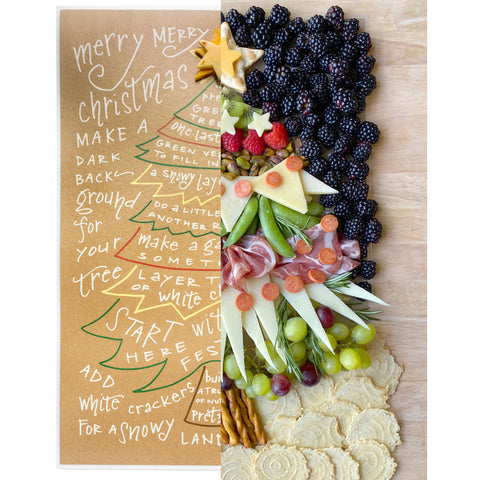 merry MERRY
christmas
MAKE A
DARK
BACK-
ground
for
your
tree
GREEN
TREE
one last
GREEN VE
TO FILL IN
a snowy lay
DO A LITTL
ANOTHER R
make a ga
SOMET
LAYER T
OF white C
START WIT
HERE FES
ADD
white crackers
FOR A SNOWY LAND
A TRU
OF NU
pretz